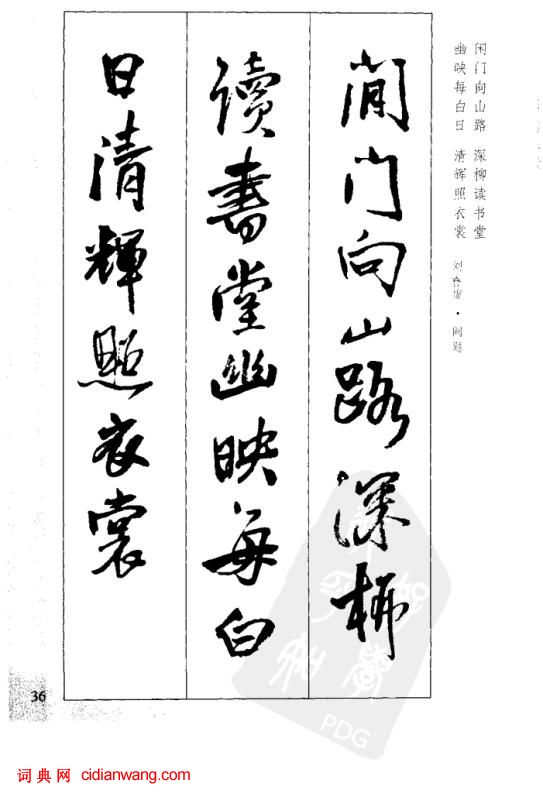 闲门向山路 深柳读书堂
幽映每白日 清辉照衣裳 刘眘虚·阙题
閒门向山路深柳
讀書堂幽映每白
日清輝照衣裳
36
PDG
词典网 cidianwang.com